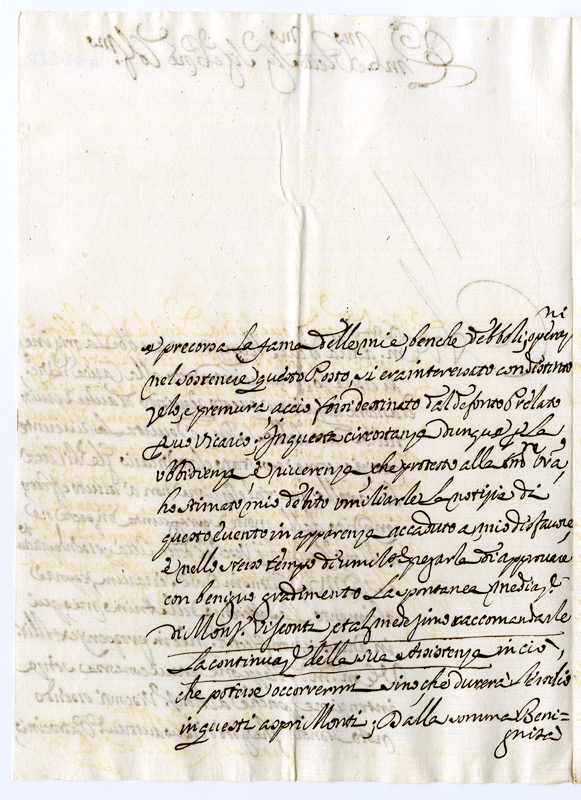 e precorsa la fama delle mie, benche debboli, operoni
nel sostenere questo Posto, si era interessato con distinto
zelo, e premura, acciò fossi destinato dal defonto Prelato
suo Vicario; In questa circostanza dunque p la
obbidienza e riverenza, che protesto alla Em.a Vra,
ho stimato mio debito umiliarle la notizia di
questo evento in apparenza accaduto a mio disfavore,
e nello stesso tempo di pregarla di approvare
con benigno gradimento la spontanea
di Mons.r Visconti, et al medesimo raccomandarle
la continuaz.e della sua Assistenza in ciò,
che potesse occorvermi sino che durerà l'esilio
in questi aspri Monti; Dalla somma Beni=
gnità